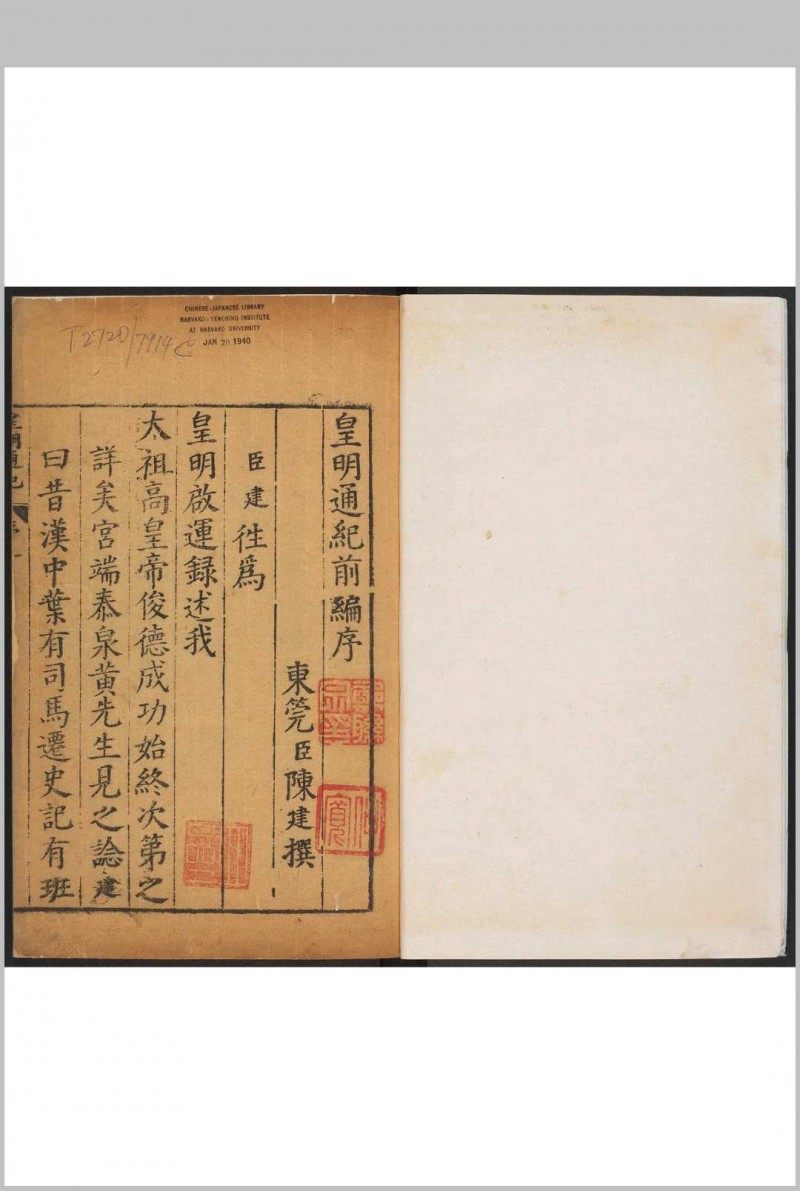 CHINESE-JAPANESE LIBRARY
HARVARD-YENCHING INSTITUTE
AT HARVARD UNIVERSITY
JAN 20 1940
T2720/7914C
皇明通紀前編序
東筦臣陳建撰
臣建徃爲
皇明啟運録述我
太祖高皇帝俊德成功始終次第之
詳矣宮端泰泉黄先生見之諗建
曰昔漢中葉有司馬遷史記有班